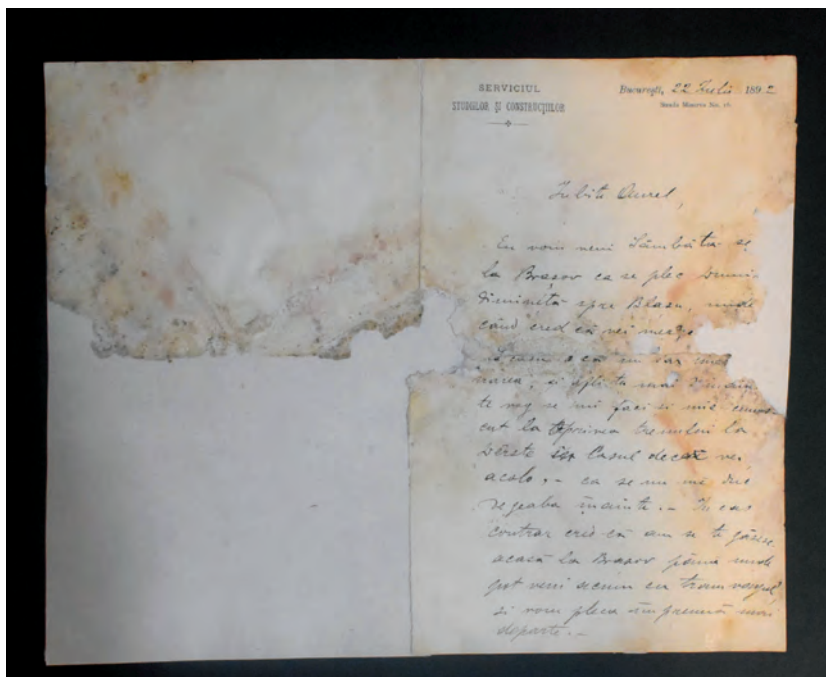 SERVICIUL
STUDIILOR ȘI CONSTRUCȚIILOR
București, 22 Iulii 1892
Strada Minerva No. 16.
Iubite Aurel,
Eu voiu veni Sâmbăta se
la Brașov ca se plec
diminéță spre Blaou, unde
când cred că vei merge
o că nu
și afli ta mai
te rog se mi faci si mie cunos-
cut la oprirea trenului la
in Casul decaz vei
acolo. – ca se nu me duc
degeaba înainte. – In cas
contrar cred că am se te găsesc
acasă la Brasov până unde
pot veni acum cu tramvayul,
si vom pleca împreună mai
departe. –